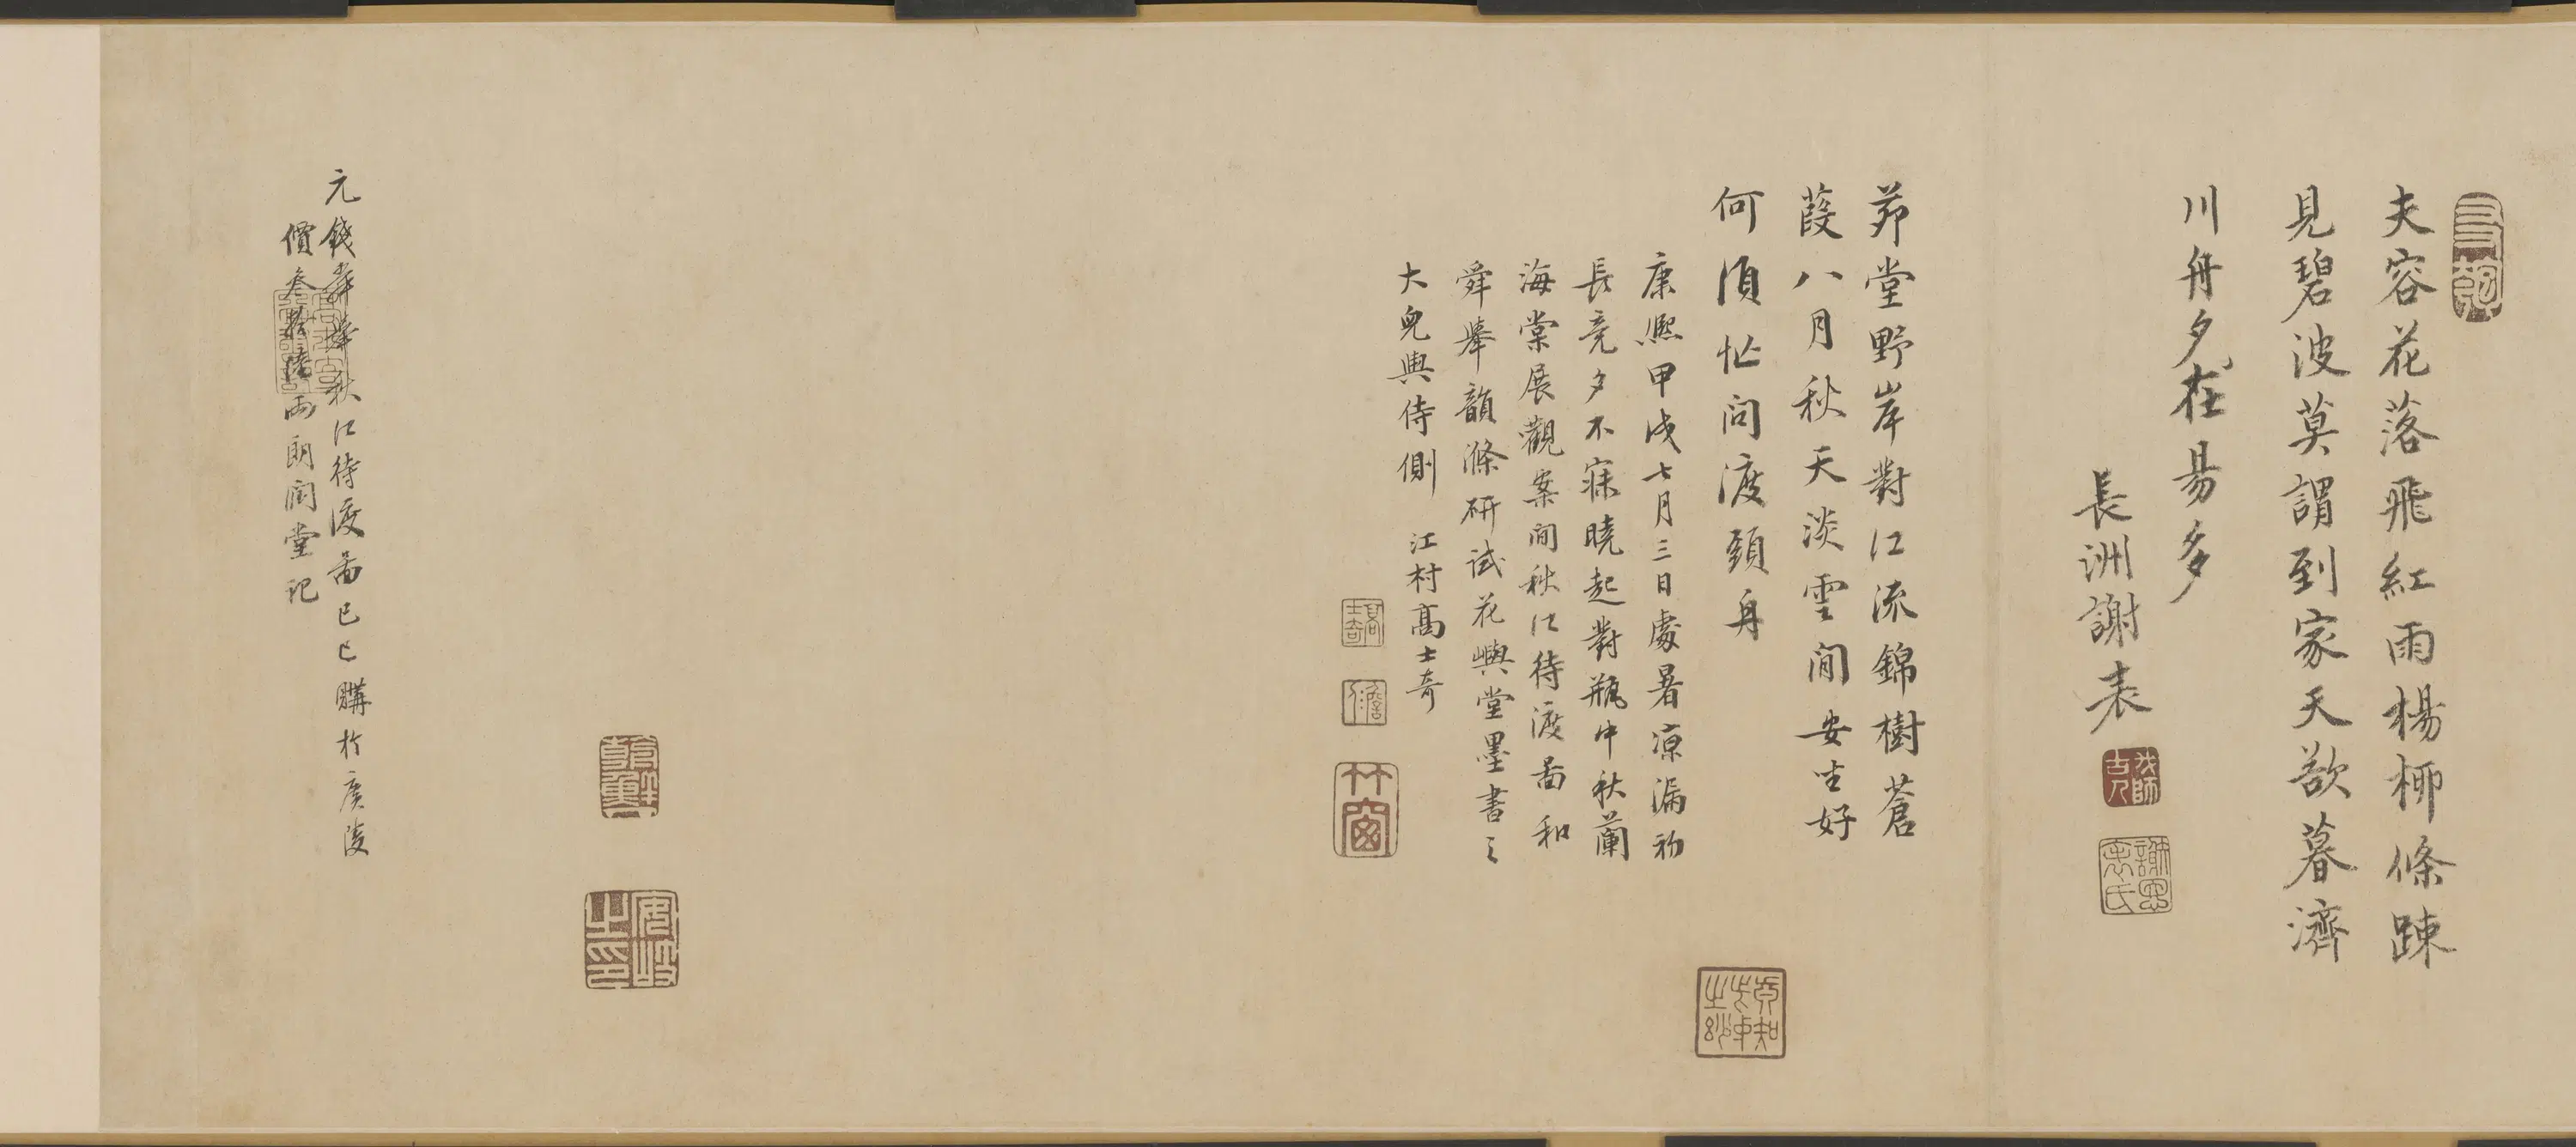 夫容花落飛紅雨楊柳條踈
見碧波莫謂到家天欲暮濟
川舟夕在易多
長洲謝表
我師古人
茆堂野岸對江流錦樹蒼
葭八月秋天淡雲閒安坐好
何須忙問渡頭舟
康熙甲戌七月三日處暑涼漏初
長竟夕不寐曉起對瓶中秋蘭
海棠展觀案間秋江待渡畵和
舜舉韻滌研試花嶼堂墨書之
大兒輿侍側 江村高士奇
高士奇
竹窗
安岐之印
元錢舜舉秋江待渡畵己巳購於廣陵
價叁拾陸兩朗潤堂記